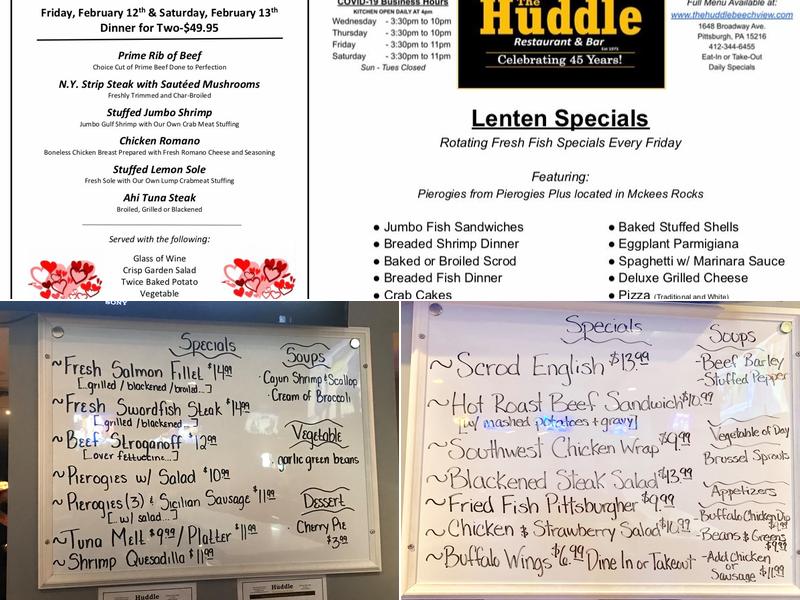 Friday, February 12th & Saturday, February 13th
Dinner for Two-$49.95
Prime Rib of Beef
Choice Cut of Prime Beef Done to Perfection
N.Y. Strip Steak with Sautéed Mushrooms
Freshly Trimmed and Char-Broiled
Stuffed Jumbo Shrimp
Jumbo Gulf Shrimp with Our Own Crab Meat Stuffing
Chicken Romano
Boneless Chicken Breast Prepared with Fresh Romano Cheese and Seasoning
Stuffed Lemon Sole
Fresh Sole with Our Own Lump Crabmeat Stuffing
Ahi Tuna Steak
Broiled, Grilled or Blackened
Served with the following:
Glass of Wine
Crisp Garden Salad
Twice Baked Potato
Vegetable
COVID-19 Business Hours
KITCHEN OPEN DAILY AT 4pm
Wednesday - 3:30pm to 10pm
Thursday - 3:30pm to 10pm
Friday - 3:30pm to 11pm
Saturday - 3:30pm to 11pm
Sun - Tues Closed
The
Huddle
Restaurant & Bar
Est 1975
Celebrating 45 Years!
Full Menu Available at:
www.thehuddlebeechview.com
1648 Broadway Ave.
Pittsburgh, PA 15216
412-344-6455
Eat-In or Take-Out
Daily Specials
Lenten Specials
Rotating Fresh Fish Specials Every Friday
Featuring:
Pierogies from Pierogies Plus located in Mckees Rocks
● Jumbo Fish Sandwiches
● Breaded Shrimp Dinner
● Baked or Broiled Scrod
● Breaded Fish Dinner
● Crab Cakes
● Baked Stuffed Shells
● Eggplant Parmigiana
● Spaghetti w/ Marinara Sauce
● Deluxe Grilled Cheese
● Pizza (Traditional and White)
SONY
Specials
~Fresh Salmon Fillet $14.99
[grilled / blackened / broiled...]
~Fresh Swordfish Steak $14.99
[grilled / blackened...]
~Beef Stroganoff $12.99
[over fettuccine...]
~Pierogies w/ Salad $10.99
~Pierogies (3) & Sicilian Sausage $11.99
[..w/ salad...]
~Tuna Melt $9.99 / Platter $11.99
~Shrimp Quesadilla $11.99
Soups
· Cajun Shrimp & Scallop
· Cream of Broccoli
Vegetable
· garlic green beans
Dessert
· Cherry Pie
$3.99
Huddle
Huddle
Specials
~Scrod English $13.99
~Hot Roast Beef Sandwich $10.99
[w/ mashed potatoes + gravy]
~Southwest Chicken Wrap $9.99
~Blackened Steak Salad $13.99
~Fried Fish Pittsburgher $9.99
~Chicken & Strawberry Salad $10.99
~Buffalo Wings $6.99 Dine In or Takeout
Soups
-Beef Barley
-Stuffed Pepper
Vegetable of Day
Brussel Sprouts
Appetizers
-Buffalo Chicken Dip
-Beans & Greens
$9.99
-Add Chicken
or
Sausage $11.99